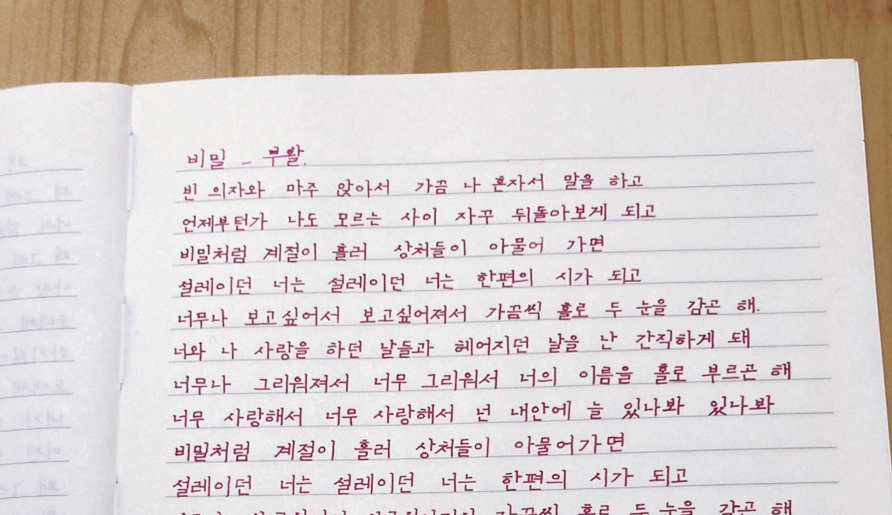 비밀 - 부활.
빈 의자와 마주 앉아서 가끔 나 혼자서 말을 하고
언제부턴가 나도 모르는 사이 자꾸 뒤돌아보게 되고
비밀처럼 계절이 흘러 상처들이 아물어 가면
설레이던 너는 설레이던 너는 한편의 시가 되고
너무나 보고싶어서 보고싶어져서 가끔씩 홀로 두 눈을 감곤 해.
너와 나 사랑을 하던 날들과 헤어지던 날을 난 간직하게 돼
너무나 그리워져서 너무 그리워서 너의 이름을 홀로 부르곤 해
너무 사랑해서 너무 사랑해서 넌 내안에 늘 있나봐 있나봐
비밀처럼 계절이 흘러 상처들이 아물어가면
설레이던 너는 설레이던 너는 한편의 시가 되고
가끔씩 홀로 두 눈을 감곤 해